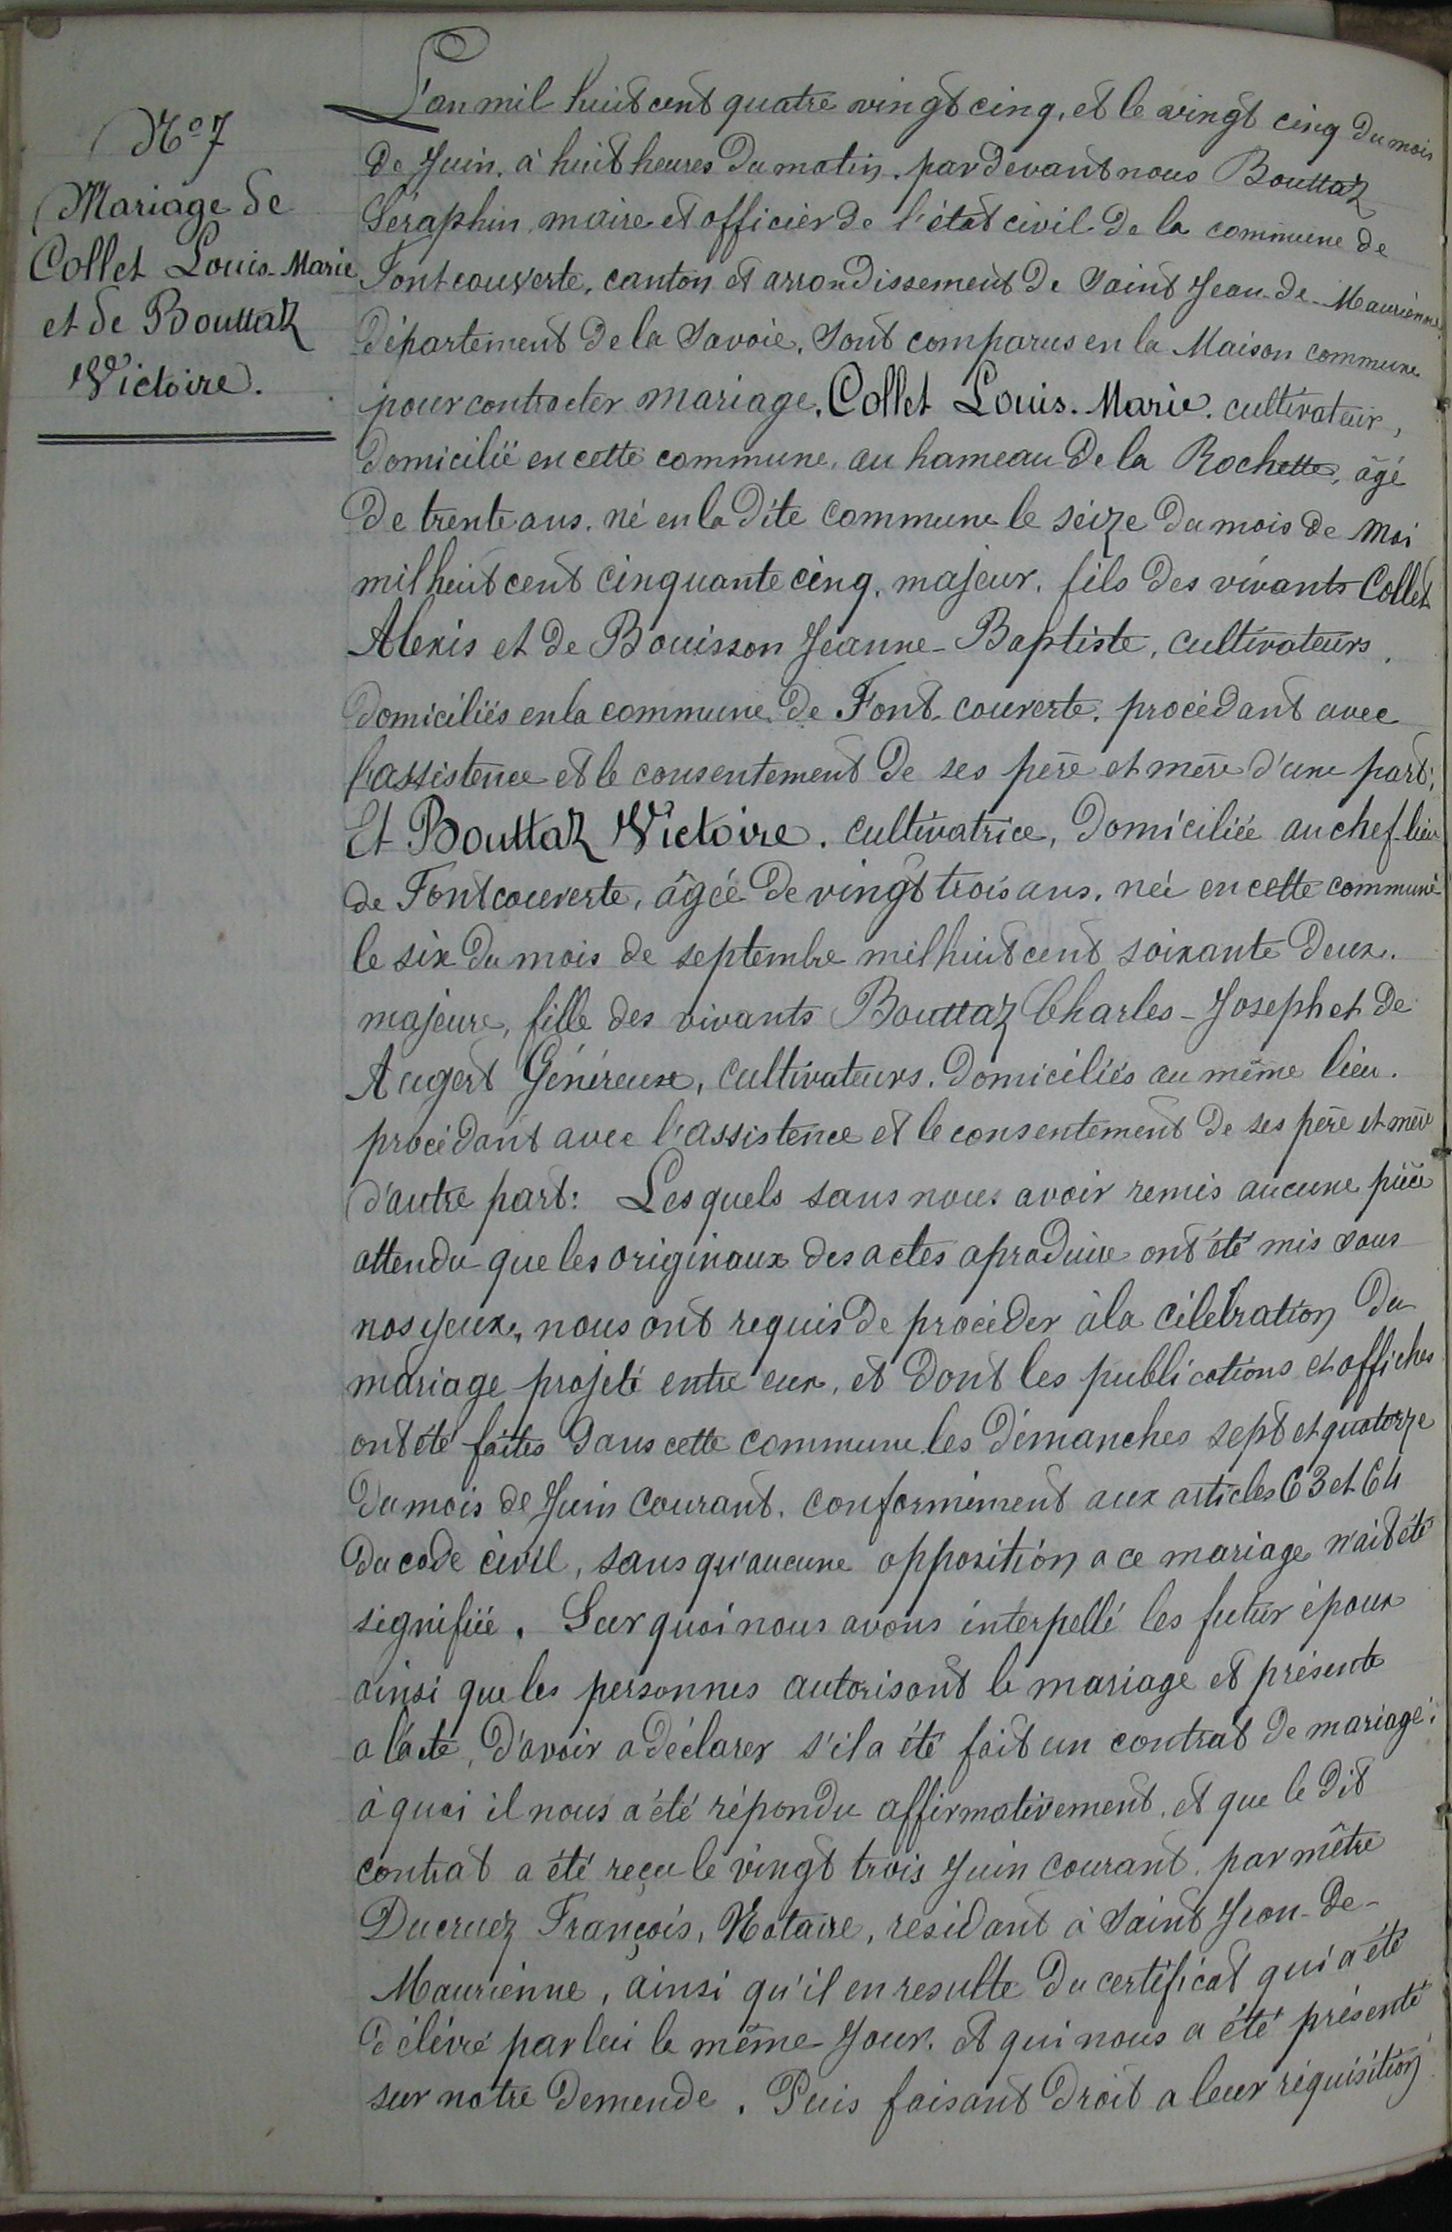 N° 7
Mariage de
Collet Louis-Marie
et de Bouttaz
Victoire.
L'an mil huit cent quatre vingt cinq, et le vingt cinq du mois
de Juin, à huit heures du matin, par devant nous Bouttaz
Séraphin, maire et officier de l'état civil de la commune de
Fontcouverte, canton et arrondissement de Saint Jean-de-Maurienne
département de la Savoie, sont comparus en la Maison commune
pour contracter mariage, Collet Louis-Marie, cultivateur,
domicilié en cette commune, au hameau de la Rochette, âgé
de trente ans, né en la dite commune le seize du mois de Mai
mil huit cent cinquante cinq, majeur, fils des vivants Collet
Alexis et de Bouisson Jeanne-Baptiste, cultivateurs,
domiciliés en la commune de Font-couverte, procédant avec
l'assistence et le consentement de ses père et mère d'une part;
Et Bouttaz Victoire, cultivatrice, domiciliée au chef-lieu
de Fontcouverte, âgée de vingt trois ans, née en cette commune
le six du mois de septembre mil huit cent soixante deux,
majeure, fille des vivants Bouttaz Charles-Joseph et de
Augert Généreuse, cultivateurs, domiciliés au même lieu,
procédant avec l'assistence et le consentement de ses père et mère
d'autre part: Lesquels sans nous avoir remis aucune pièce
attendu que les originaux des actes a produire ont été mis sous
nos yeux, nous ont requis de procéder à la célébration du
mariage projeté entre eux, et dont les publications et affiches
ont été faites dans cette commune les dimanches sept et quatorze
du mois de Juin courant, conformément aux articles 63 et 64
du code civil, sans qu'aucune opposition a ce mariage n'ait été
signifiée. Sur quoi nous avons interpellé les futur époux
ainsi que les personnes autorisant le mariage et présente
a l'acte, d'avoir a déclarer s'il a été fait un contrat de mariage;
à quoi il nous a été répondu affirmativement, et que le dit
contrat a été reçu le vingt trois Juin courant, par mêtre
Ducruez François, Notaire, residant à Saint Jean-de-
Maurienne, ainsi qu'il en resulte du certificat qui a été
délévré par lui le même Jour, et qui nous a été présenté
sur notre demende. Puis faisant droit a leur réquisition